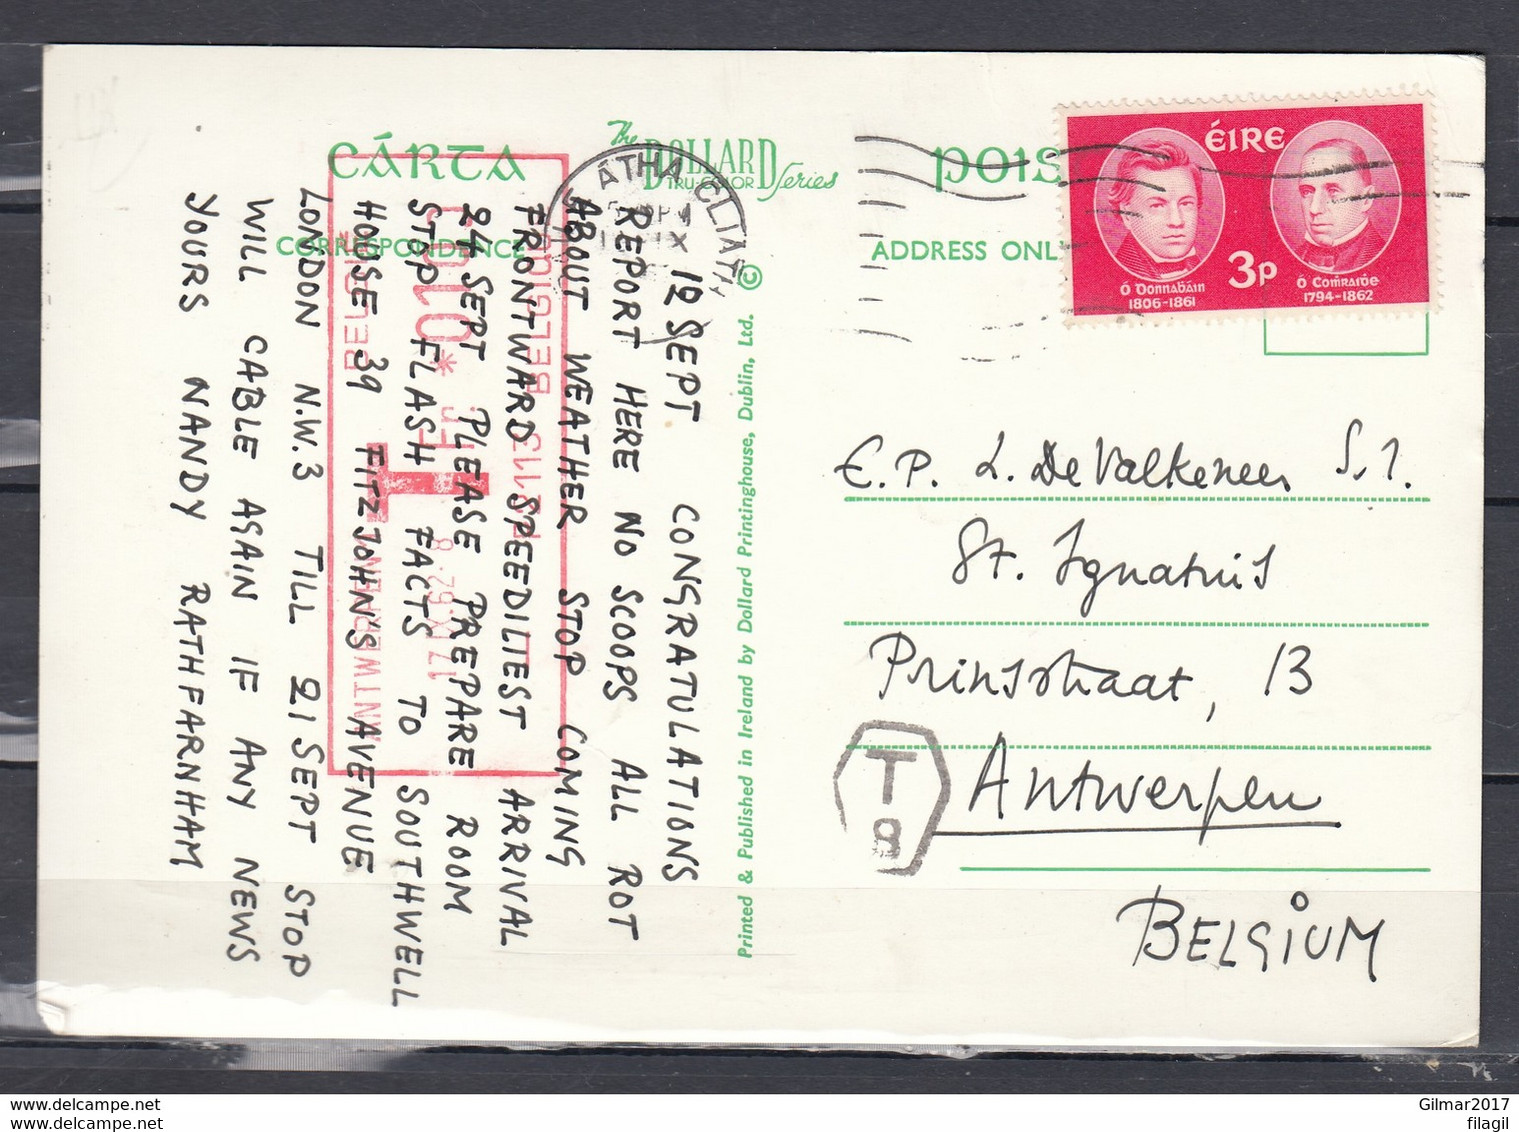 CÁRTA
The
DOLLARD
TRU-COLOR Series
POIS
CORRESPONDENCE
ADDRESS ONL
ÁTHA CLIATH
ÉIRE
3p
Ó Donnabáin
1806-1861
Ó Comraide
1794-1862
12 SEPT CONGRATULATIONS
REPORT HERE NO SCOOPS ALL ROT
ABOUT WEATHER STOP COMING
FRONTWARD SPEEDILIEST ARRIVAL
24 SEPT PLEASE PREPARE ROOM
STOP FLASH FACTS TO SOUTHWELL
HOUSE 39 FITZJOHN'S AVENUE
LONDON N.W.3 TILL 21 SEPT STOP
WILL CABLE AGAIN IF ANY NEWS
YOURS NANDY RATHFARNHAM
BELGIQUE BELGIE
P5113
T
17.IX.62.8
ANTWERPEN
BELGIË
Printed & Published in Ireland by Dollard Printinghouse, Dublin, Ltd. ©
E.P. L. De Valkeneer S.J.
St. Ignatius
Prinsstraat, 13
Antwerpen
BELGIUM
T
8
delcampe.net
Gilmar2017
filagil